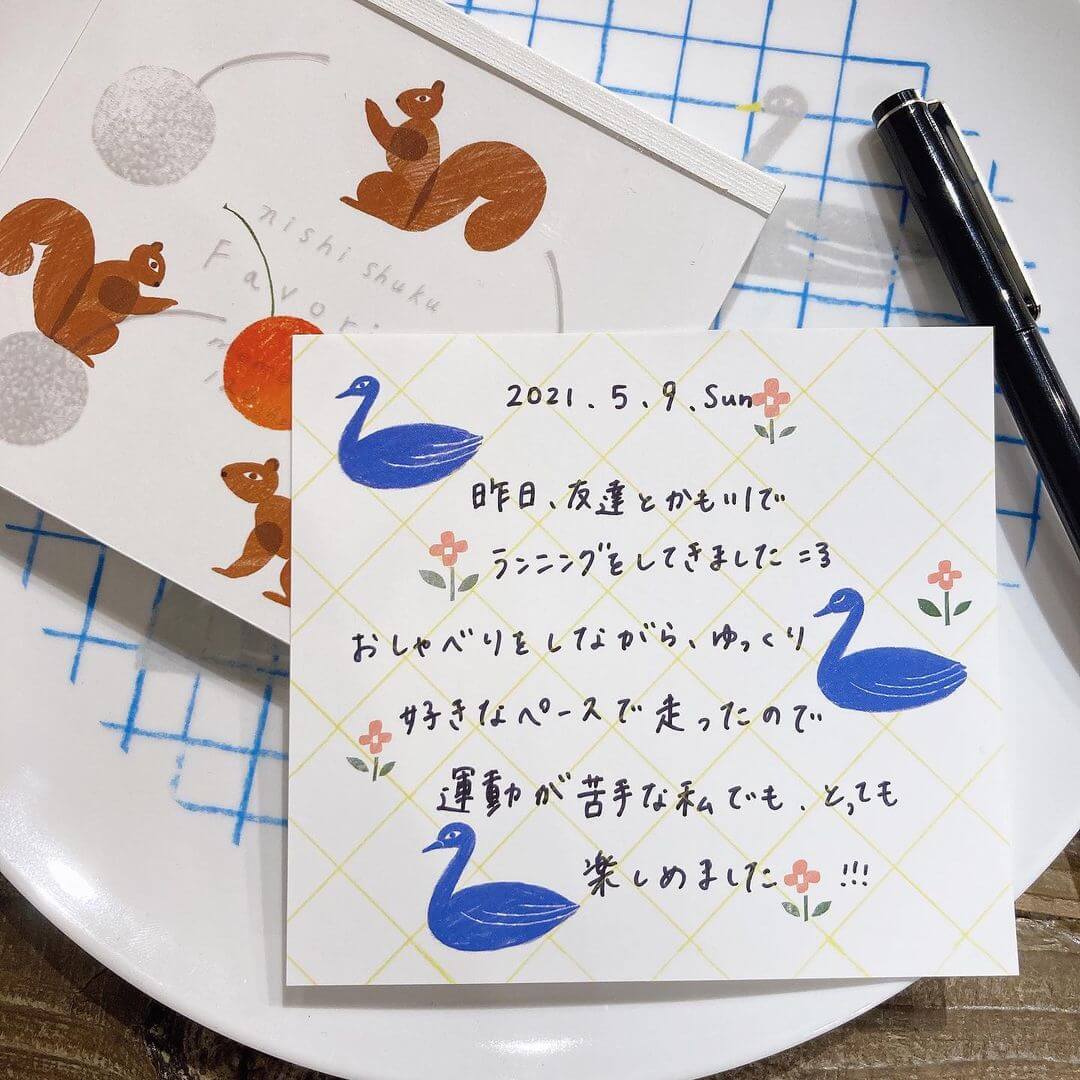 nishi shuku
Favori
2021.5.9.Sun
昨日、友達とかも川で
ランニングをしてきました=3
おしゃべりをしながら、ゆっくり
好きなペースで走ったので
運動が苦手な私でも、とっても
楽しめました!!!